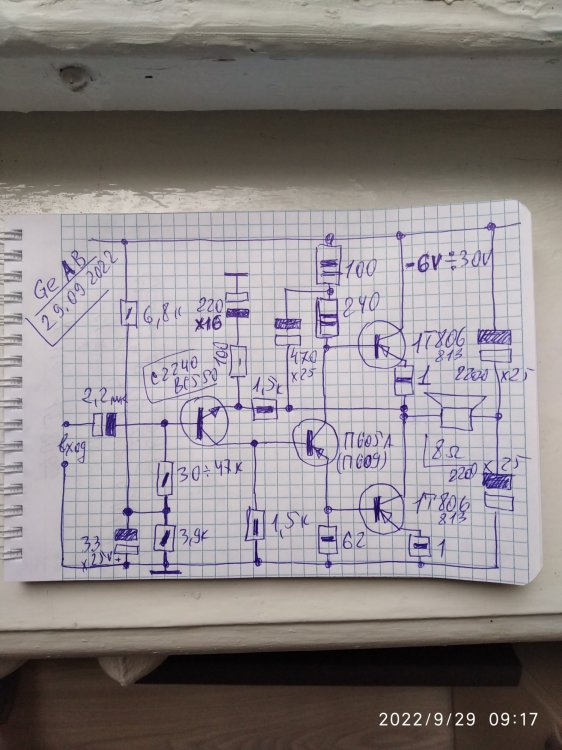 Ge AB
29.09.2022
6,8к
220
х16
100
-6V÷30V
100
240
1Т806
813
470
х25
1
2200 х25
C2240
BC550
1,5к
2,2мк
вход
П605А
(П609)
8Ω
2200 х 25
30÷47к
1Т806
813
33
х25V
+
3,9к
1,5к
62
1
2022/9/29 09:17